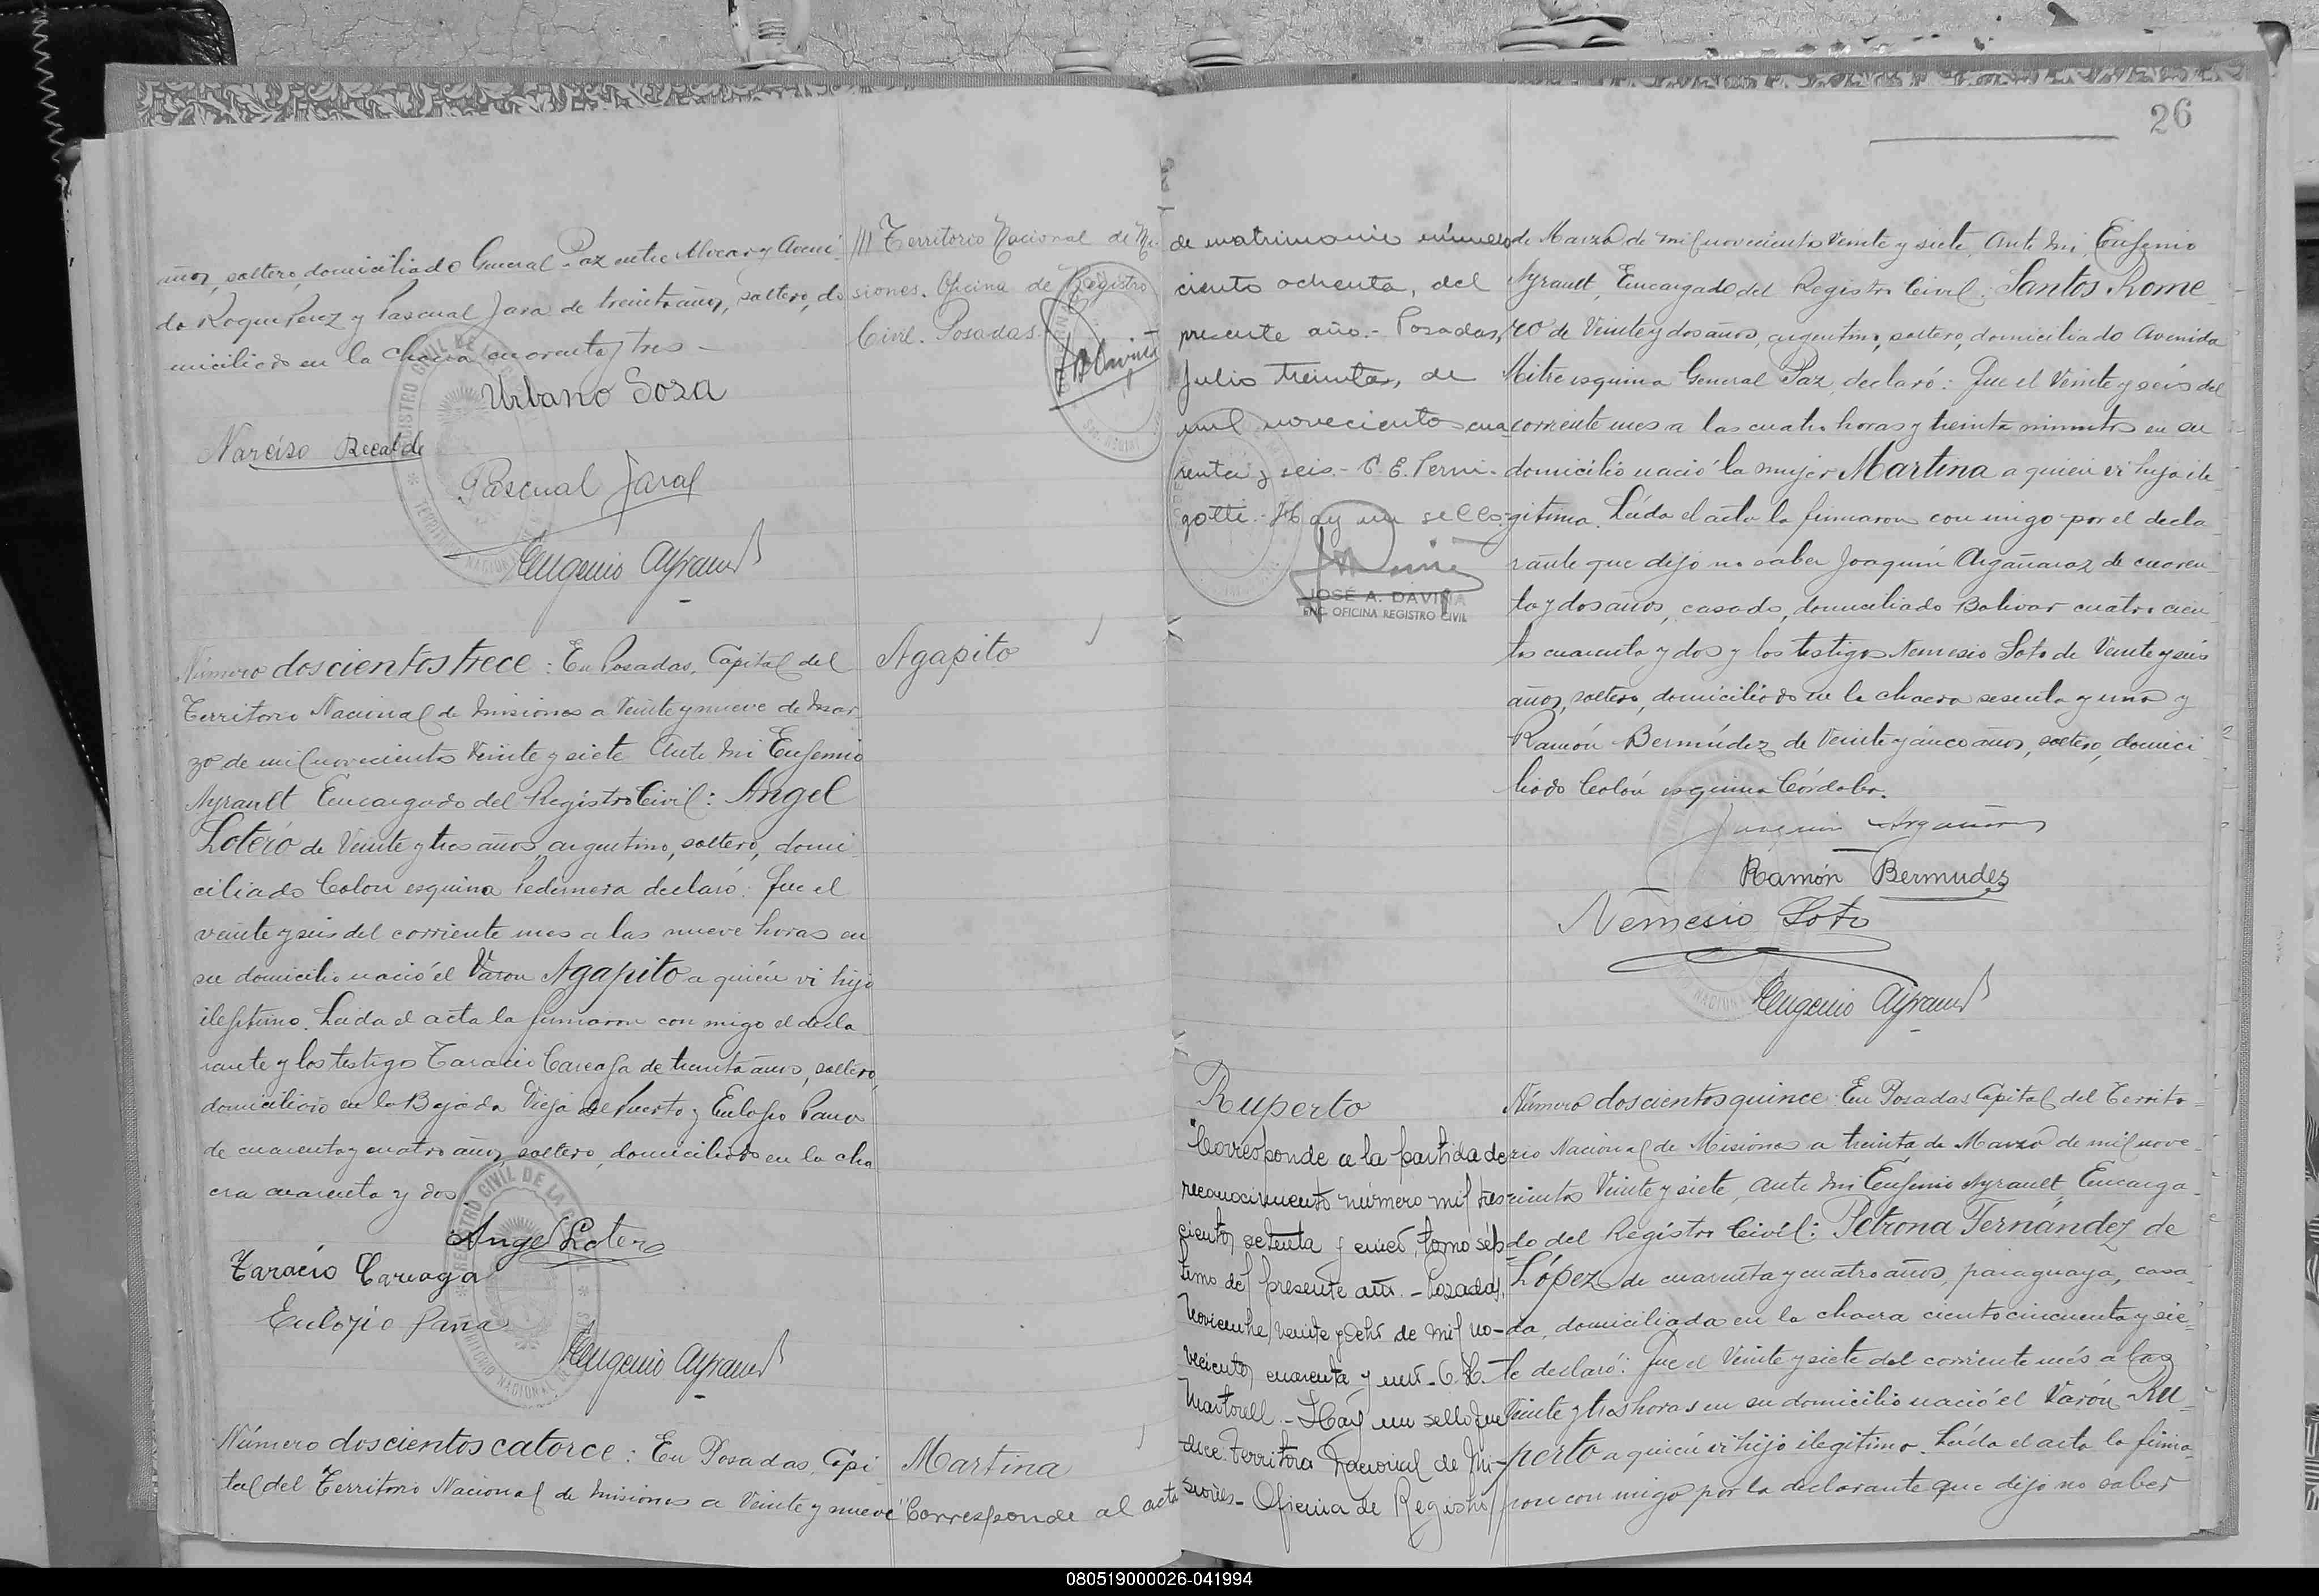 años, soltero, domiciliado General Paz entre Alvear y Aveni
da Roque Perez y Pascual Jara de treinta años, soltero, do
miciliado en la chacra cuarenta y tres -
Urbano Sosa
Narciso Recalde
Pascual Jara
Eugenio Ayrault
/// Territorio Nacional de Mi
siones. Oficina de Registro
Civil. Posadas.
Número doscientos trece: En Posadas, Capital del
Territorio Nacional de Misiones a Veinte y nueve de Mar
zo de mil novecientos Veinte y siete Ante Mi Eugenio
Ayrault Encargado del Registro Civil: Angel
Lotero de Veinte y tres años, argentino, soltero, domi
ciliado Colon esquina Pedernera declaró: Que el
veinte y seis del corriente mes a las nueve horas en
su domicilio nació el Varon Agapito a quién vi hijo
ilegitimo. Leida el acta la firmaron con migo el decla
rante y los testigo Taracio Careaga de treinta años, soltero,
domiciliado en la Bajada Vieja del Puerto y Eulogio
de cuarenta y cuatro años, soltero, domiciliado en la cha
cra cuarenta y dos
Angel Lotero
Taracio Careaga
Eulogio
Eugenio Ayrault
Agapito
Número doscientos catorce: En Posadas, Capi
tal del Territorio Nacional de Misiones a Veinte y nueve
Martina
"Corresponde al acta
26
de matrimonio número
ciento ochenta, del
presente año.- Posadas,
Julio treinta, de
mil noveciento cua
renta y seis.- C. E. Perni-
gotti.- Hay un sello:
JOSÉ A. DAVIÑA
ENC. OFICINA REGISTRO CIVIL
de Marzo de mil novecientos Veinte y siete, Ante Mi, Eugenio
Ayrault, Encargado del Registro Civil: Santos Rome
ro de Veinte y dos años, argentino, soltero, domiciliado Avenida
Mitre esquina General Paz, declaró: Que el Veinte y seis del
corriente mes a las cuatro horas y treinta minutos en su
domicilio nació la mujer Martina a quién vi hija ile
gitima. Leida el acta la firmaron con migo por el decla
rante que dijo no saber Joaquín Argañaraz de cuaren
ta y dos años, casado, domiciliado Bolivar cuatro cien
tos cuarenta y dos y los testigos Nemesio Soto de Veinte y seis
años, soltero, domiciliado en la chacra sesenta y una y
Ramón Bermúdez de Veinte y cinco años, soltero, domici
liado Colón esquina Córdoba.
Joaquin
Ramón Bermudez
Nemesio Soto
Eugenio Ayrault
Ruperto
"Corresponde a la partida de
reconocimiento número mil tres
cientos setenta y cinco, tomo sép
timo del presente año.- Posadas,
Noviembre, veinte y ocho de mil no-
vecientos cuarenta y uno
Martorell.- Hay un sello que
dice: Territorio Nacional de Mi-
siones- Oficina de Registro
Número doscientos quince: En Posadas Capital del Territo-
rio Nacional de Misiones a treinta de Marzo de mil nove-
cientos Veinte y siete, ante mi Eugenio Ayrault, Encarga-
do del Registro Civil: Petrona Fernández de
López de cuarenta y cuatro años, paraguaya, casa
da, domiciliada en la chacra ciento cincuenta y sie-
te declaró: Que el Veinte y siete del corriente més a las
Veinte y tres horas en su domicilio nació el Varón Ru-
perto a quién vi hijo ilegitimo. Leida el acta la firma-
ron con migo por la declarante que dijo no saber
080519000026-041994